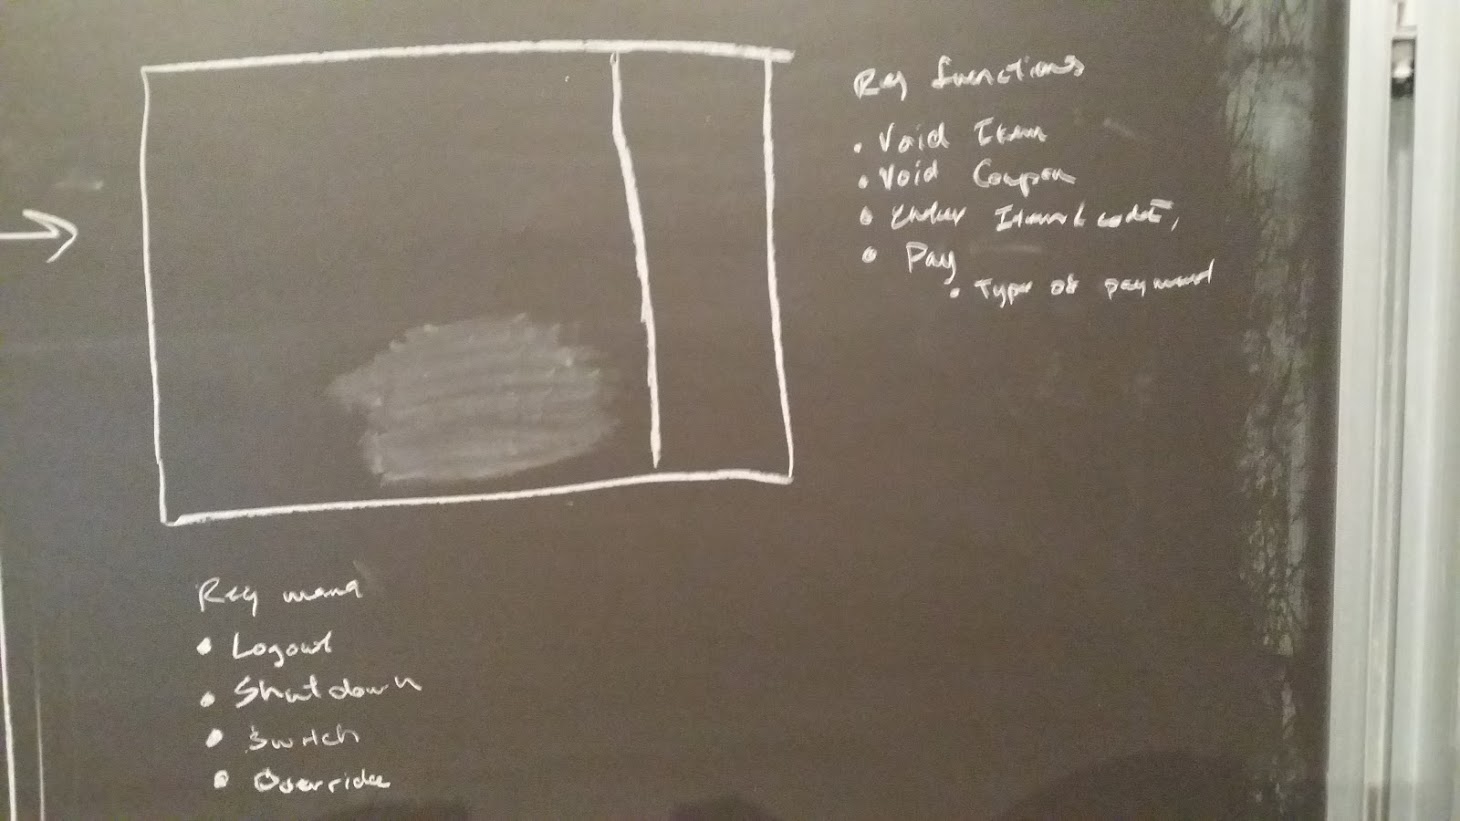 Reg functions
• Void Item
• Void Coupon
• Enter Item code
• Pay
• Type of payment
Reg mana
• Logout
• Shutdown
• Switch
• Override